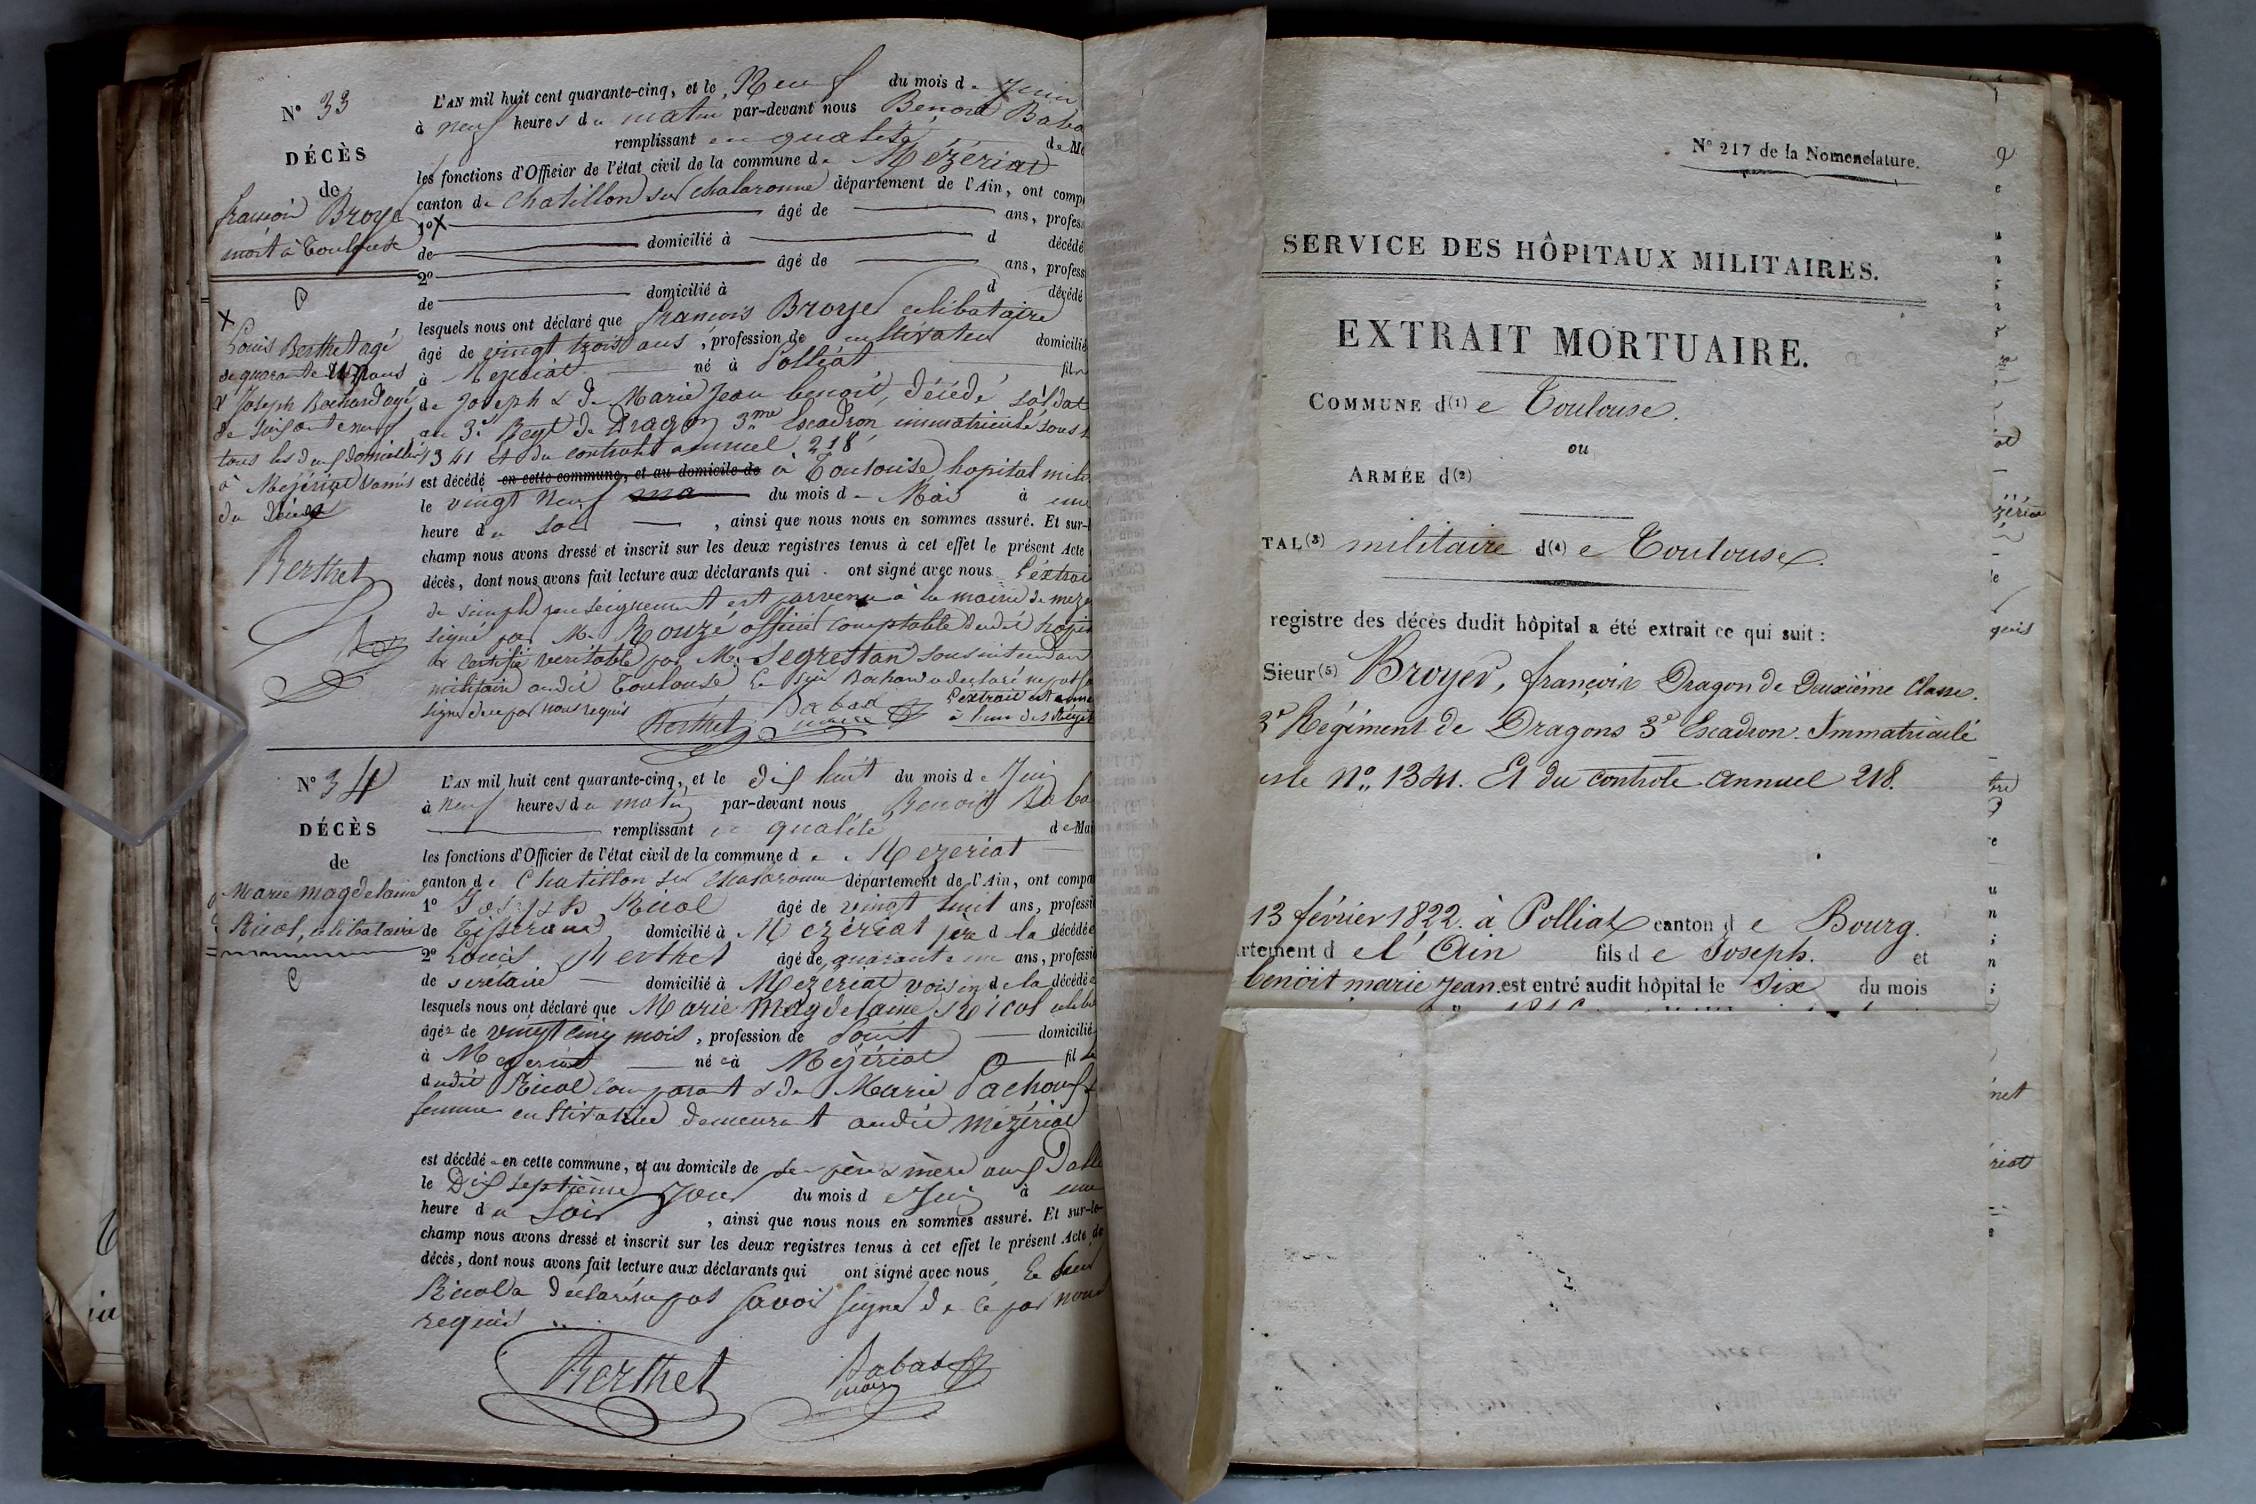 N° 33
DÉCÈS
de
françois Broyer
mort à Toulouse
X
Louis Berthet agé
de quarante un ans
& Joseph Bochard agé
de soixante neuf
tous les deux domiciliés
à Mezériat & amis
du décédé
Berthet
L'AN mil huit cent quarante-cinq, et le Neuf du mois de Juin
à neuf heures du matin par-devant nous Benoit Baba
remplissant en qualité de Ma
les fonctions d'Officier de l'état civil de la commune de Mézériat
canton de Chatillon sur chalaronne département de l'Ain, ont comp
1° X âgé de ans, profes
de domicilié à d décédé
2° âgé de ans, profess
de domicilié à d décédé
lesquels nous ont déclaré que françois Broyer celibataire
âgé de vingt trois ans, profession de cultivateur domicilié
à Mezeriat né à Polliat fils
de Joseph & de Marie Jean benoit, décédé soldat
au 3e Regt de Dragon 3me Escadron immatriculé sous l
1341 et du controle annuel 218
est décédé en cette commune, et au domicile de à Toulouse hopital milit
le vingt Neuf du mois de Mai à une
heure du soir, ainsi que nous nous en sommes assuré. Et sur-l
champ nous avons dressé et inscrit sur les deux registres tenus à cet effet le présent Acte
décès, dont nous avons fait lecture aux déclarants qui ont signé avec nous L'extrai
de simple renseignement est parvenu à la mairie de meze
signé par M. Rouzé officier comptable dudit hopit
& certifié veritable par M. Segrestan sous intendan
militaire audit Toulouse Le sieur Bochard a declaré ne pas sa
signer de ce par nous requis
L'extrait est anne
à l'un des
Berthet Babad maire
N° 34
DÉCÈS
de
Marie magdelaine
Ricol, celibataire
L'AN mil huit cent quarante-cinq, et le dix huit du mois de Juin
à neuf heures du matin par-devant nous Benoit Baba
remplissant en qualité de Mai
les fonctions d'Officier de l'état civil de la commune de Mezeriat
canton de Chatillon sur chalaronne département de l'Ain, ont compa
1° Joseph Ricol âgé de vingt huit ans, professi
de Tisserand domicilié à Mezeriat père de la décédée
2° Louis Berthet âgé de quarante un ans, professi
de secrétaire domicilié à Mezériat voisin de la décédée
lesquels nous ont déclaré que Marie Magdelaine Ricol celib
âgée de vingt cinq mois, profession de domicilié
à Mezeriat née à Mezériat fille
dudit Ricol comparant & de Marie Pachoux
femme cultivatrice demeurant audit mézériat
est décédée en cette commune, et au domicile de ses père & mère
le Dix septième Jour du mois de Juin à une
heure du soir, ainsi que nous nous en sommes assuré. Et sur-le-
champ nous avons dressé et inscrit sur les deux registres tenus à cet effet le présent Acte de
décès, dont nous avons fait lecture aux déclarants qui ont signé avec nous Le sieur
Ricol a déclaré ne pas savoir signer de ce par nous
requis
Berthet Babad maire
N° 217 de la Nomenclature.
SERVICE DES HÔPITAUX MILITAIRES.
EXTRAIT MORTUAIRE.
COMMUNE d(1) e Toulouse.
ou
ARMÉE d(2)
TAL(3) militaire d(4) e Toulouse.
registre des décès dudit hôpital a été extrait ce qui suit :
Sieur(5) Broyer, françois Dragon de Deuxième Classe.
3e Régiment de Dragons 3e Escadron. Immatriculé
us le N° 1341. Et du controle annuel 218.
13 février 1822. à Polliat canton d e Bourg.
rtement d e l'Ain fils d e Joseph. et
benoit marie jean. est entré audit hôpital le Six du mois